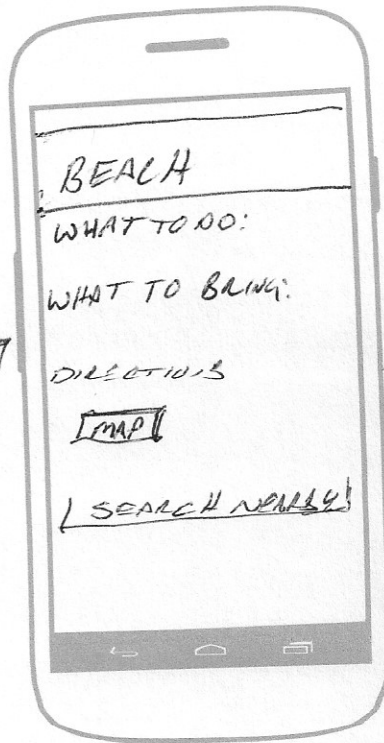 BEACH
WHAT TO DO:
WHAT TO BRING:
DIRECTIONS
MAP
SEARCH NEARBY